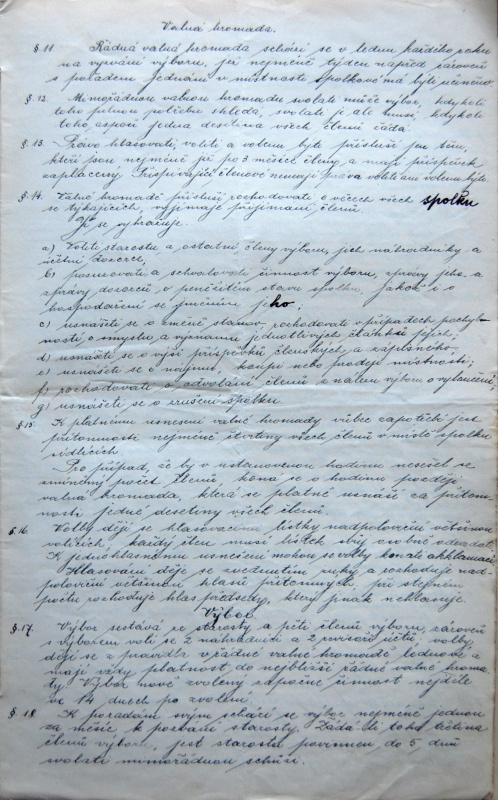 Valná hromada.
§ 11. Řádná valná hromada schází se v lednu každého roku
na vyzvání výboru, jež nejméně týden napřed zároveň
s pořadem jednání v místnosti spolkové má býti učiněno
§ 12. Mimořádnou valnou hromadu svolati může výbor, kdykoli
toho pilnou potřebu shledá, svolati ji ale musí, kdykoli
toho aspoň jedna desetina všech členů žádá.
§ 13. Právo hlasovati, voliti a volenu býti přísluší jen těm,
kteří jsou nejméně již po 3 měsíce členy a mají příspěvek
zaplacený. Přispívající členové nemají práva voliti ani volenu býti
§ 14. Valné hromadě přísluší rozhodovati o věcech všech spolku
se týkajících, vyjímaje přijímání členů
Jí se vyhražuje:
a) Voliti starostu a ostatní členy výboru, jich náhradníky a
účetní dozorce,
b) posuzovati a schvalovati činnost výboru, zprávy jeho a
zprávy dozorců o peněžitém stavu spolku, jakož i o
hospodaření se jměním jeho;
c) usnášeti se o změně stanov, rozhodovati v případech pochyb-
nosti o smyslu a významu jednotlivých článků jejich,
d) usnášeti se o výši příspěvků členských a zápisného
e) usnášeti se o nájmu, koupi nebo prodeji místnosti;
f) rozhodovati o odvolání členů z nálezu výboru o vyloučení,
g) usnášeti se o zrušení spolku
§ 15. K platnému usnesení valné hromady vůbec zapotřebí jest
přítomnosti nejméně čtvrtiny všech členů v místě spolku
sídlících
Pro případ, že by v ustanovenou hodinu nesešel se
zmíněný počet členů, koná se o hodinu později
valná hromada, která se platně usnáší za přítom-
nosti jedné desetiny všech členů.
§ 16. Volby dějí se hlasovacími lístky nadpoloviční většinou
volících, každý člen musí lístek svůj osobně odevzdati
K jednohlasnému usnesení mohou se volby konati akklamací
Hlasování děje se zvednutím ruky a rozhoduje nad-
poloviční většinou hlasů přítomných při stejném
počtu rozhoduje hlas předsedy, který jinak nehlasuje.
Výbor
§ 17. Výbor sestává ze starosty a pěti členů výboru, zároveň
s výborem volí se 2 náhradníci a 2 revisoři účtů, volby
dějí se z pravidla v řádné valné hromadě lednové a
mají vždy platnost do nejbližší řádné valné hroma-
dy. Výbor nově zvolený započne činnost nejdéle
ve 14 dnech po zvolení.
§ 18. K poradám svým schází se výbor nejméně jednou
za měsíc k pozvání starosty. Žádá-li toho třetina
členů výboru, jest starosta povinnen do 5 dnů
svolati mimořádnou schůzi.